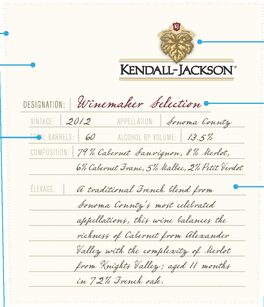 KENDALL-JACKSON®
DESIGNATION: Winemaker Selection
VINTAGE: 2012 APPELLATION: Sonoma County
TOTAL BARRELS: 60 ALCOHOL BY VOLUME: 13.5%
COMPOSITION: 79% Cabernet Sauvignon, 8% Merlot,
6% Cabernet Franc, 5% Malbec, 2% Petit Verdot
ÉLEVAGE: A traditional French blend from
Sonoma County's most celebrated
appellations, this wine balances the
richness of Cabernet from Alexander
Valley with the complexity of Merlot
from Knights Valley; aged 11 months
in 72% French oak.